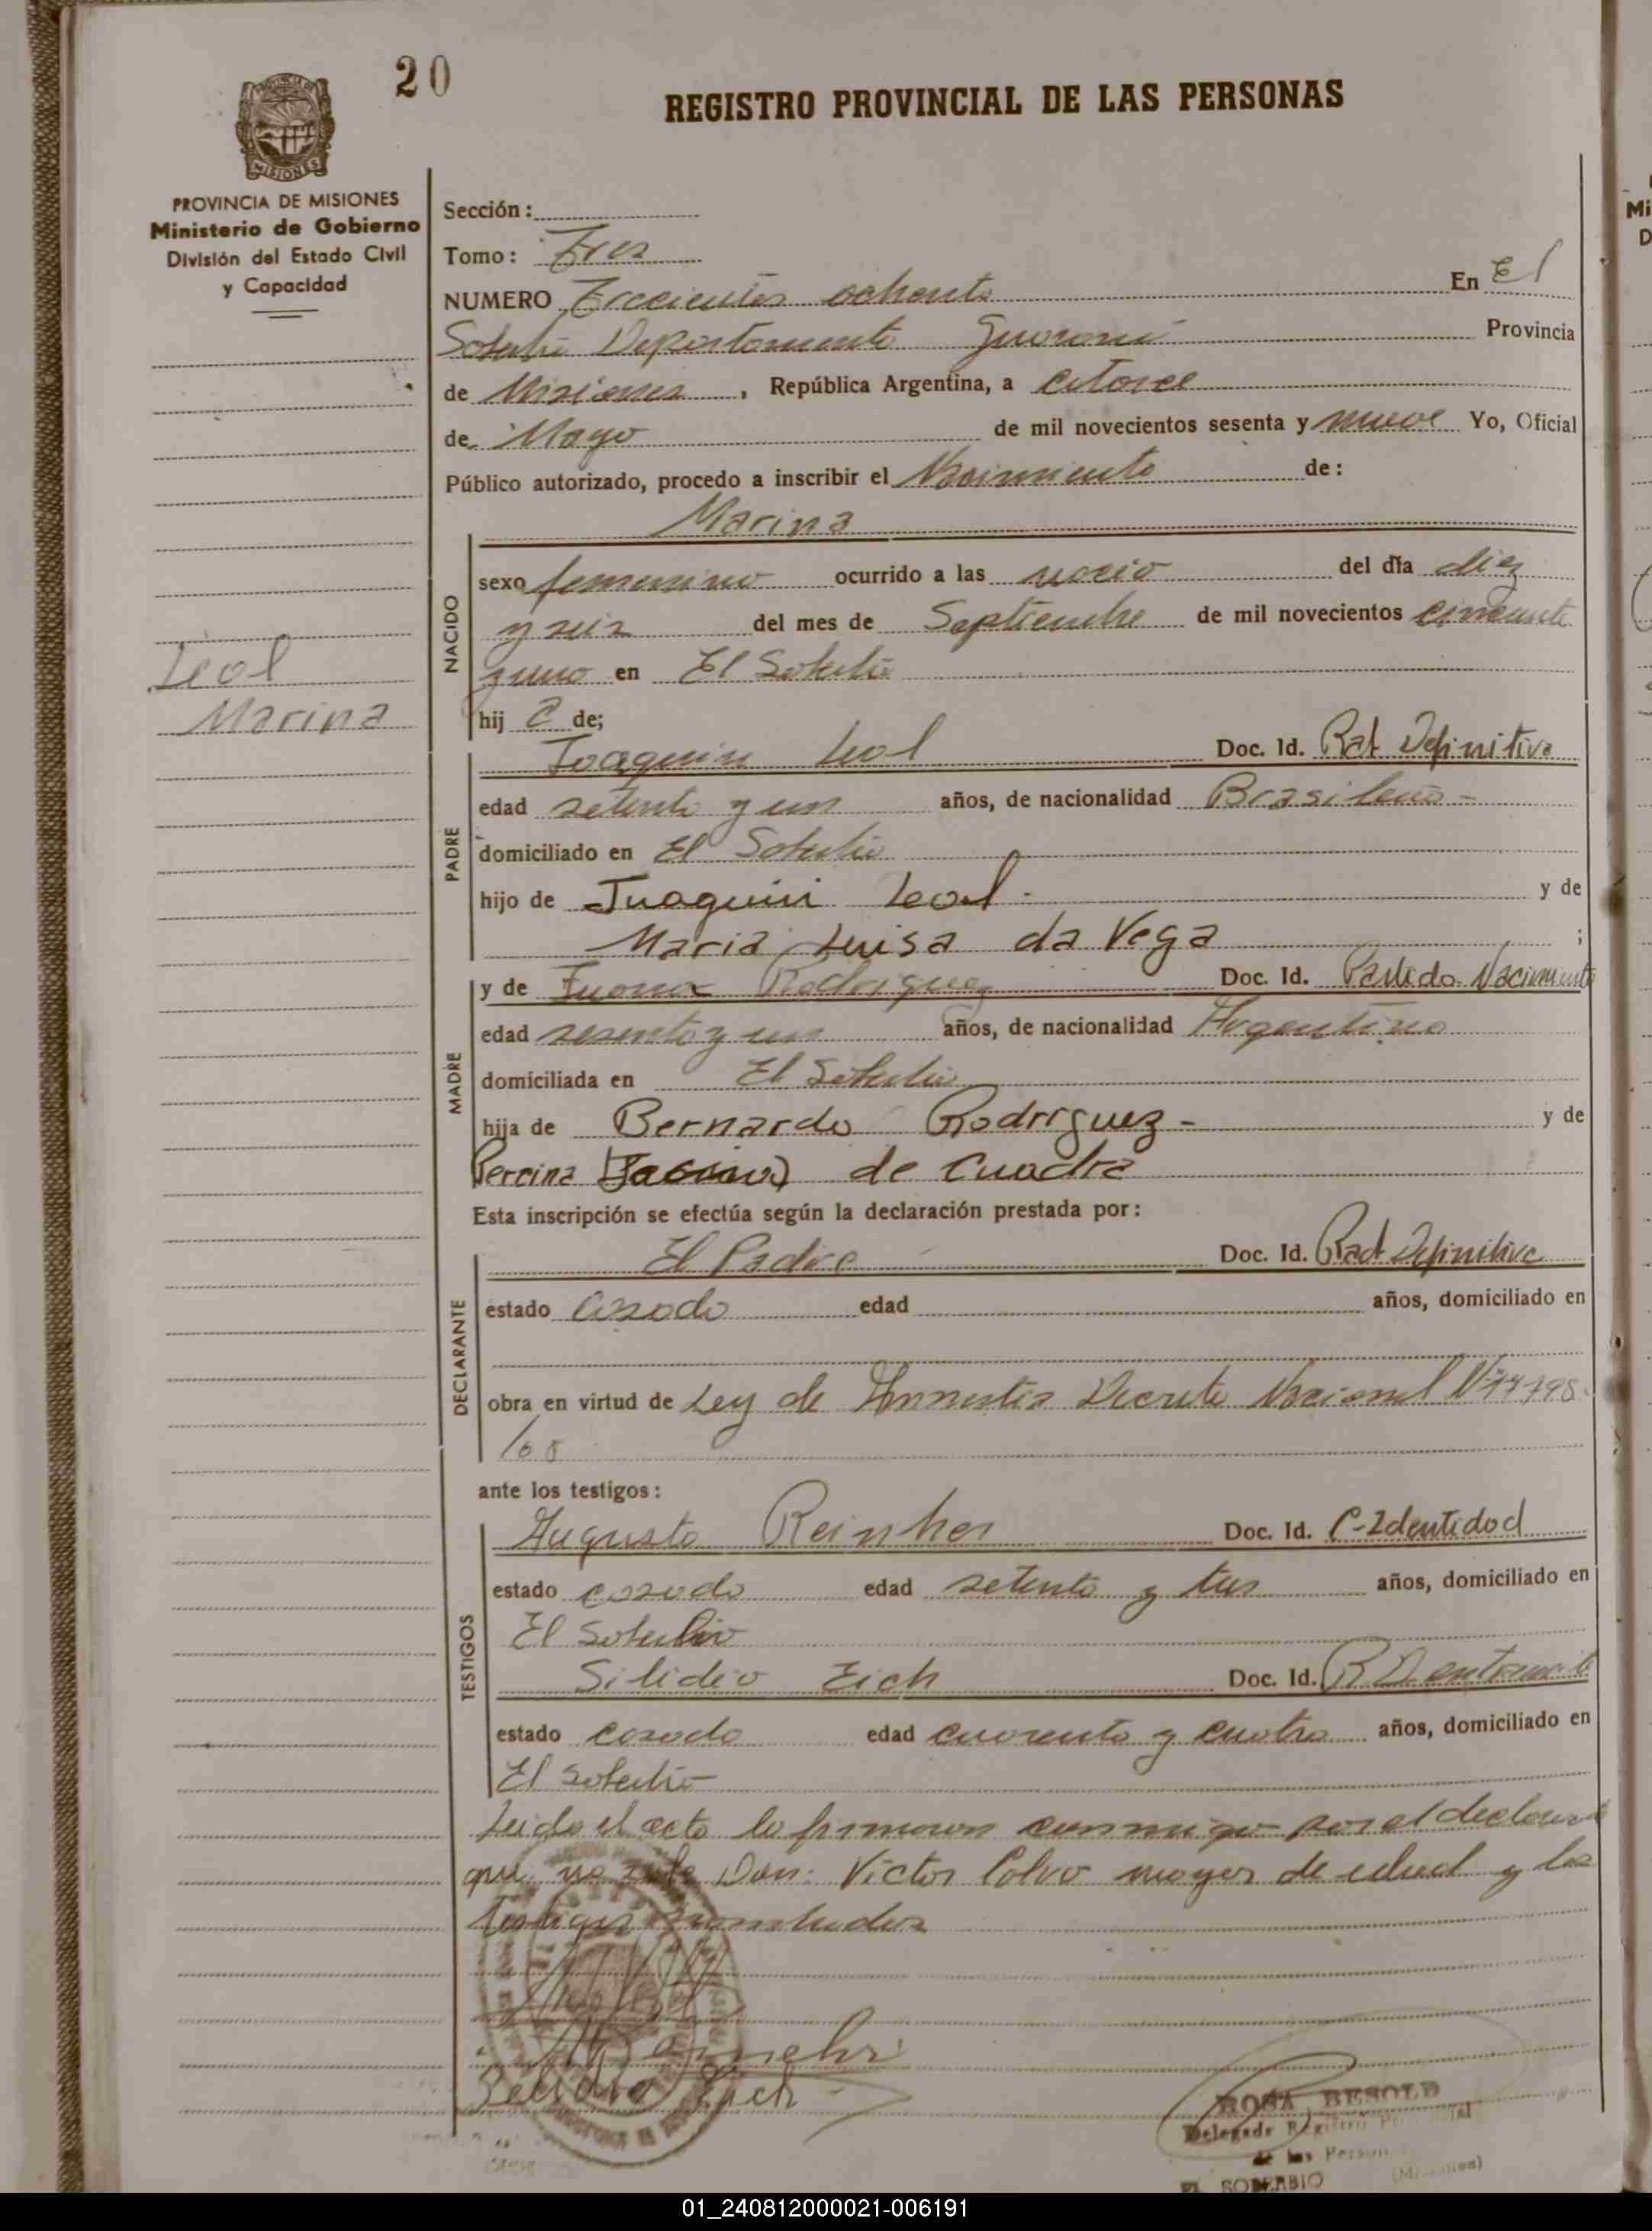 20
REGISTRO PROVINCIAL DE LAS PERSONAS
PROVINCIA DE MISIONES
Ministerio de Gobierno
División del Estado Civil
y Capacidad
Leal
Marina
Sección:
Tomo: Tres
NUMERO Trecientos ochenta En El
Soberbio Departamento Guaraní Provincia
de Misiones, República Argentina, a catorce
de Mayo de mil novecientos sesenta y nueve Yo, Oficial
Público autorizado, procedo a inscribir el Nacimiento de:
Marina
NACIDO
sexo femenino ocurrido a las del día diez
y seis del mes de Septiembre de mil novecientos cincuenta
y uno en El Soberbio
hij a de;
PADRE
Joaquin Leal Doc. Id. Rad. Definitiva
edad setenta y un años, de nacionalidad Brasileño -
domiciliado en El Soberbio
hijo de Juaquin Leal - y de
Maria Luisa da Vega ;
MADRE
y de Juana Rodriguez Doc. Id. Partida Nacimiento
edad sesenta y un años, de nacionalidad Argentina
domiciliada en El Soberbio
hija de Bernardo Rodriguez - y de
Percina de Cuadra
Esta inscripción se efectúa según la declaración prestada por:
DECLARANTE
El Padre Doc. Id. Rad. Definitiva
estado casado edad años, domiciliado en
obra en virtud de Ley de Amnistia Decreto Nacional Nº
/68
ante los testigos:
TESTIGOS
Augusto Reinher Doc. Id. C-Identidad
estado casado edad setenta y tres años, domiciliado en
El Soberbio
Silidio Eich Doc. Id.
estado casado edad cuarenta y cuatro años, domiciliado en
El Soberbio
Leida el acta la firmaron conmigo por el declarante
que no sabe Don: Victor Calvo mayor de edad y los
Testigos
Eich
ROSA BESOLD
Delegada Registro Provincial
de las Personas
EL SOBERBIO (Misiones)
01_240812000021-006191